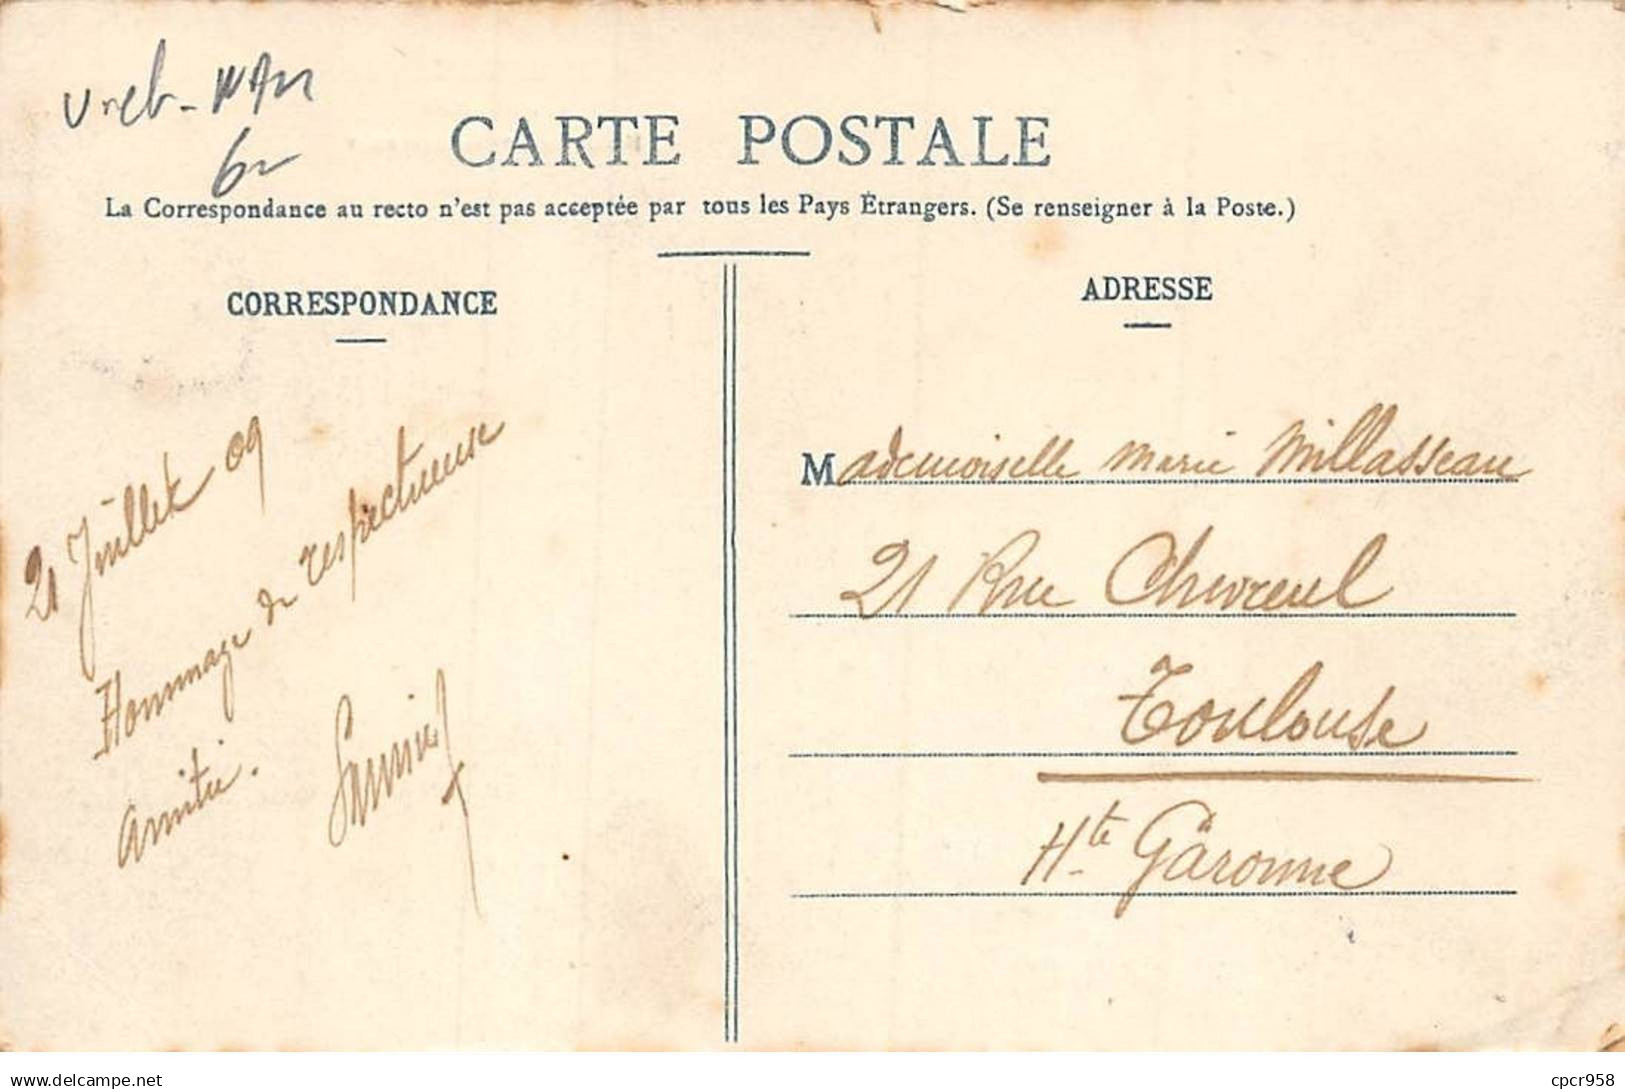 CARTE POSTALE
La Correspondance au recto n'est pas acceptée par tous les Pays Étrangers. (Se renseigner à la Poste.)
CORRESPONDANCE
21 Juillet 09
Hommage de respectueuse
amitié.
ADRESSE
Mademoiselle Marie Millasseau
21 Rue Chevreul
Toulouse
Hte Garonne
delcampe.net
cpcr958